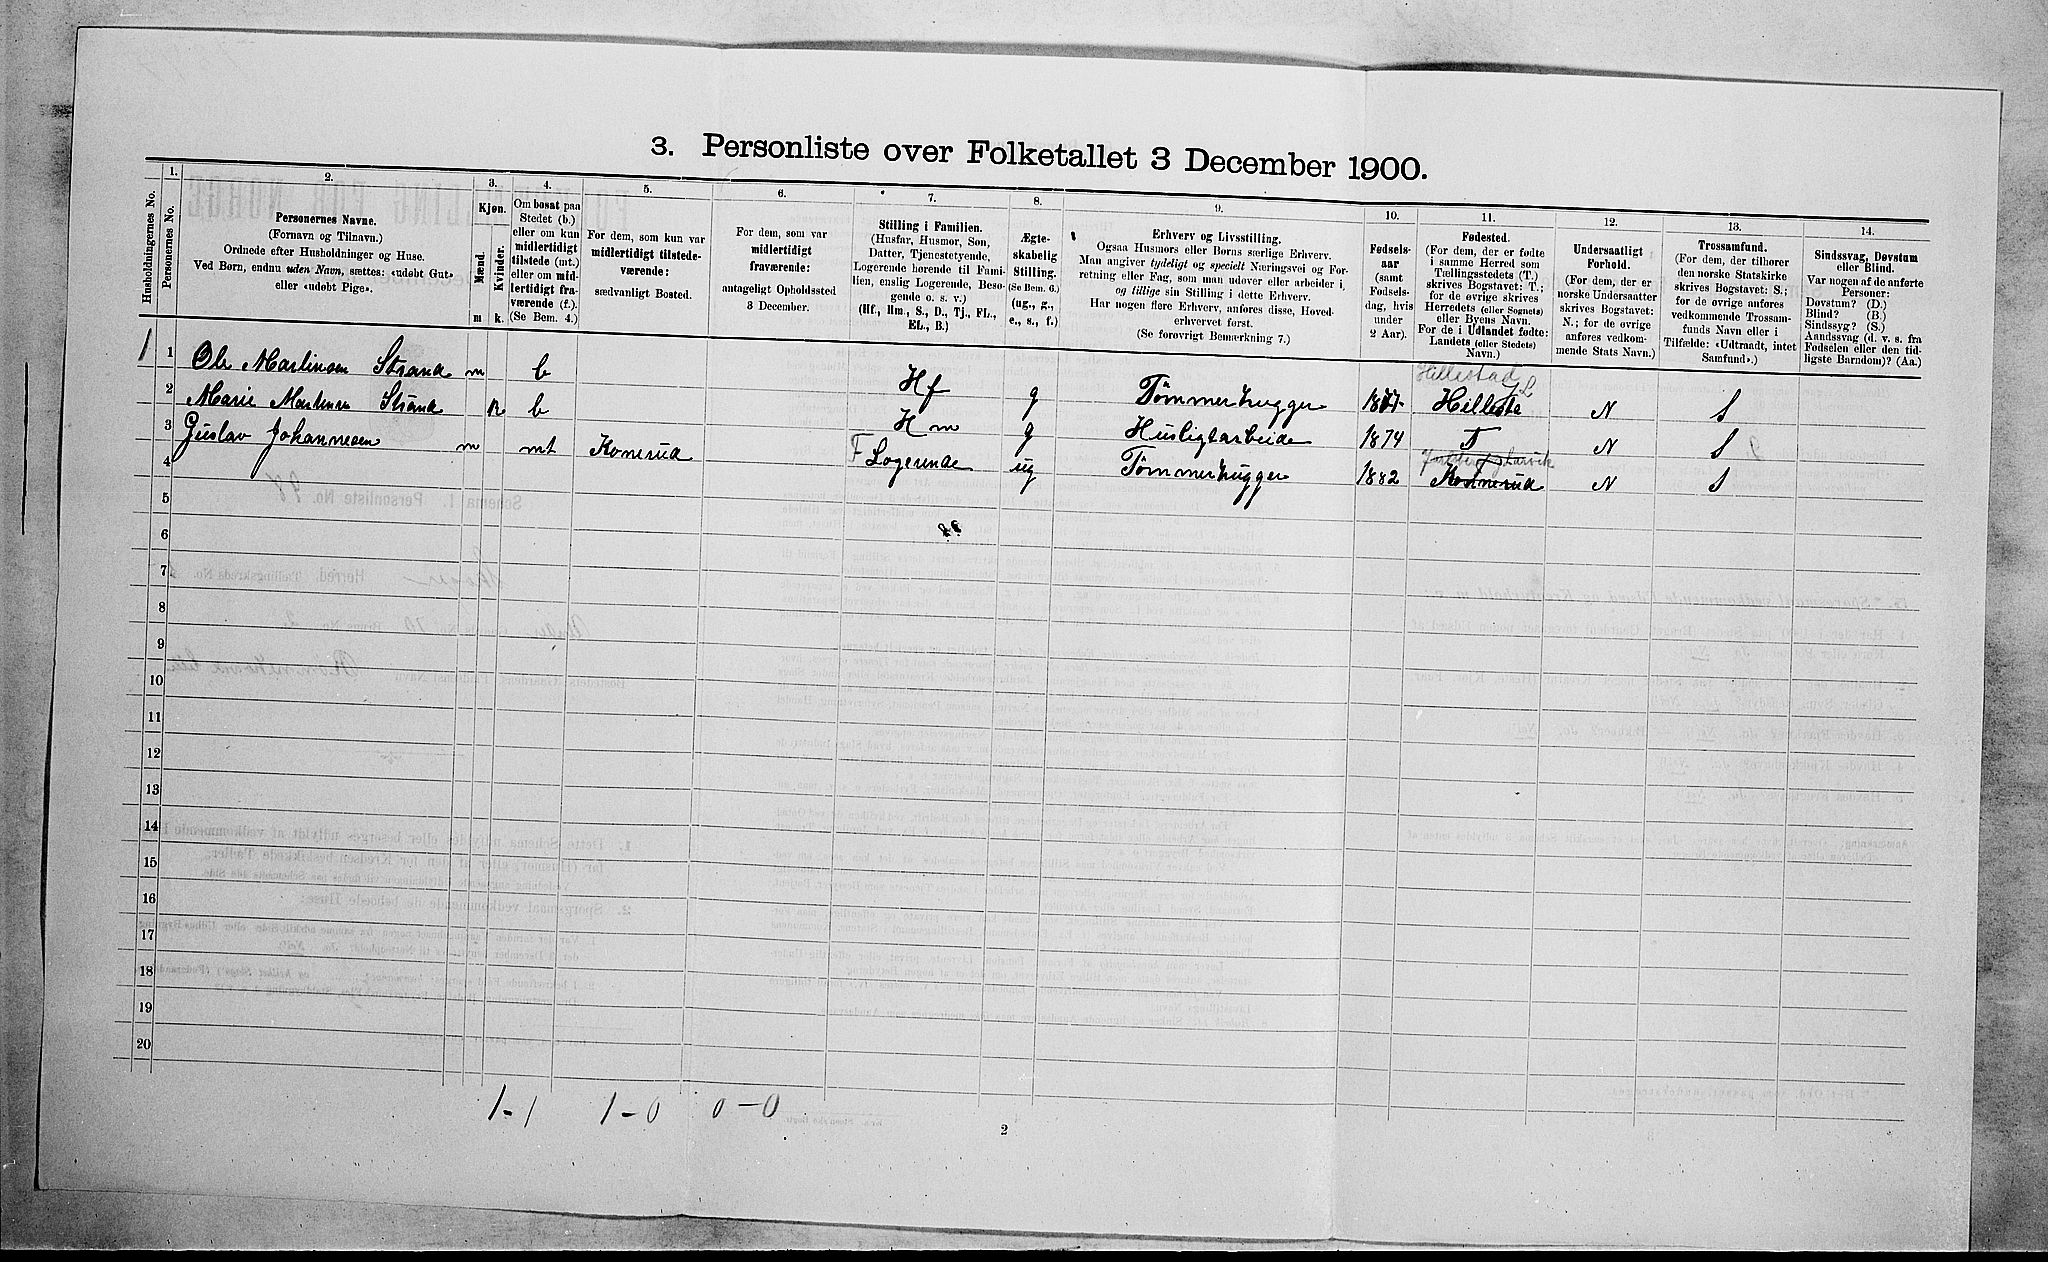 3. Personliste over Folketallet 3 December 1900.
Husholdningernes No.
1.
Personernes No.
2.
Personernes Navne.
(Fornavn og Tilnavn.)
Ordnede efter Husholdninger og Huse.
Ved Børn, endnu uden Navn, sættes: «udøbt Gut»
eller «udøbt Pige».
3.
Kjøn.
Mænd.
Kvinder.
m
k.
4.
Om bosat paa
Stedet (b.)
eller om kun
midlertidigt
tilstede (mt.)
eller om mid-
lertidigt fra-
værende (f.).
(Se Bem. 4.)
5.
For dem, som kun var
midlertidigt tilstede-
værende:
sædvanligt Bosted.
6.
For dem, som var
midlertidigt
fraværende:
antageligt Opholdssted
3 December.
7.
Stilling i Familien.
(Husfar, Husmor, Søn,
Datter, Tjenestetyende,
Logerende hørende til Fami-
lien, enslig Logerende, Besø-
gende o. s. v.)
(Hf., Hm., S., D., Tj., FL.,
EL., B.)
8.
Ægte-
skabelig
Stilling.
(Se Bem. 6.)
(ug., g.,
e., s., f.)
9.
Erhverv og Livsstilling.
Ogsaa Husmors eller Børns særlige Erhverv.
Man angiver tydeligt og specielt Næringsvei og For-
retning eller Fag, som man udøver eller arbeider i,
og tillige sin Stilling i dette Erhverv.
Har nogen flere Erhverv, anføres disse, Hoved-
erhvervet først.
(Se forøvrigt Bemærkning 7.)
10.
Fødsels-
aar
(samt
Fødsels-
dag, hvis
under
2 Aar).
11.
Fødested.
(For dem, der er fødte
i samme Herred som
Tællingsstedets (T.)
skrives Bogstavet: T.;
for de øvrige skrives
Herredets (eller Sognets)
eller Byens Navn.
For de i Udlandet fødte:
Landets (eller Stedets)
Navn.)
12.
Undersaatligt
Forhold.
(For dem, der er
norske Undersaatter
skrives Bogstavet:
N.; for de øvrige
anføres vedkom-
mende Stats Navn.)
13.
Trossamfund.
(For dem, der tilhører
den norske Statskirke
skrives Bogstavet: S.;
for de øvrige anføres
vedkommende Trossam-
funds Navn eller i
Tilfælde: «Udtraadt, intet
Samfund».)
14.
Sindssvag, Døvstum
eller Blind.
Var nogen af de anførte
Personer:
Døvstum? (D.)
Blind? (B.)
Sindssyg? (S.)
Aandssvag (d. v. s. fra
Fødselen eller den tid-
ligste Barndom)? (Aa.)
1 1 Ole Martinsen Strand m b Hf g Tømmerhugger Hillestad N S
2 Marie Martinsen Strand k b Hm g Husligtarbeide 1874 T N S
3 Gustav Johannesen m mt Konerud F Logerende ug Tømmerhugger 1882 Konnerud N S
4
5
6
7
8
9
10
11
12
13
14
15
16
17
18
19
20
1-1 1-0 0-0
2